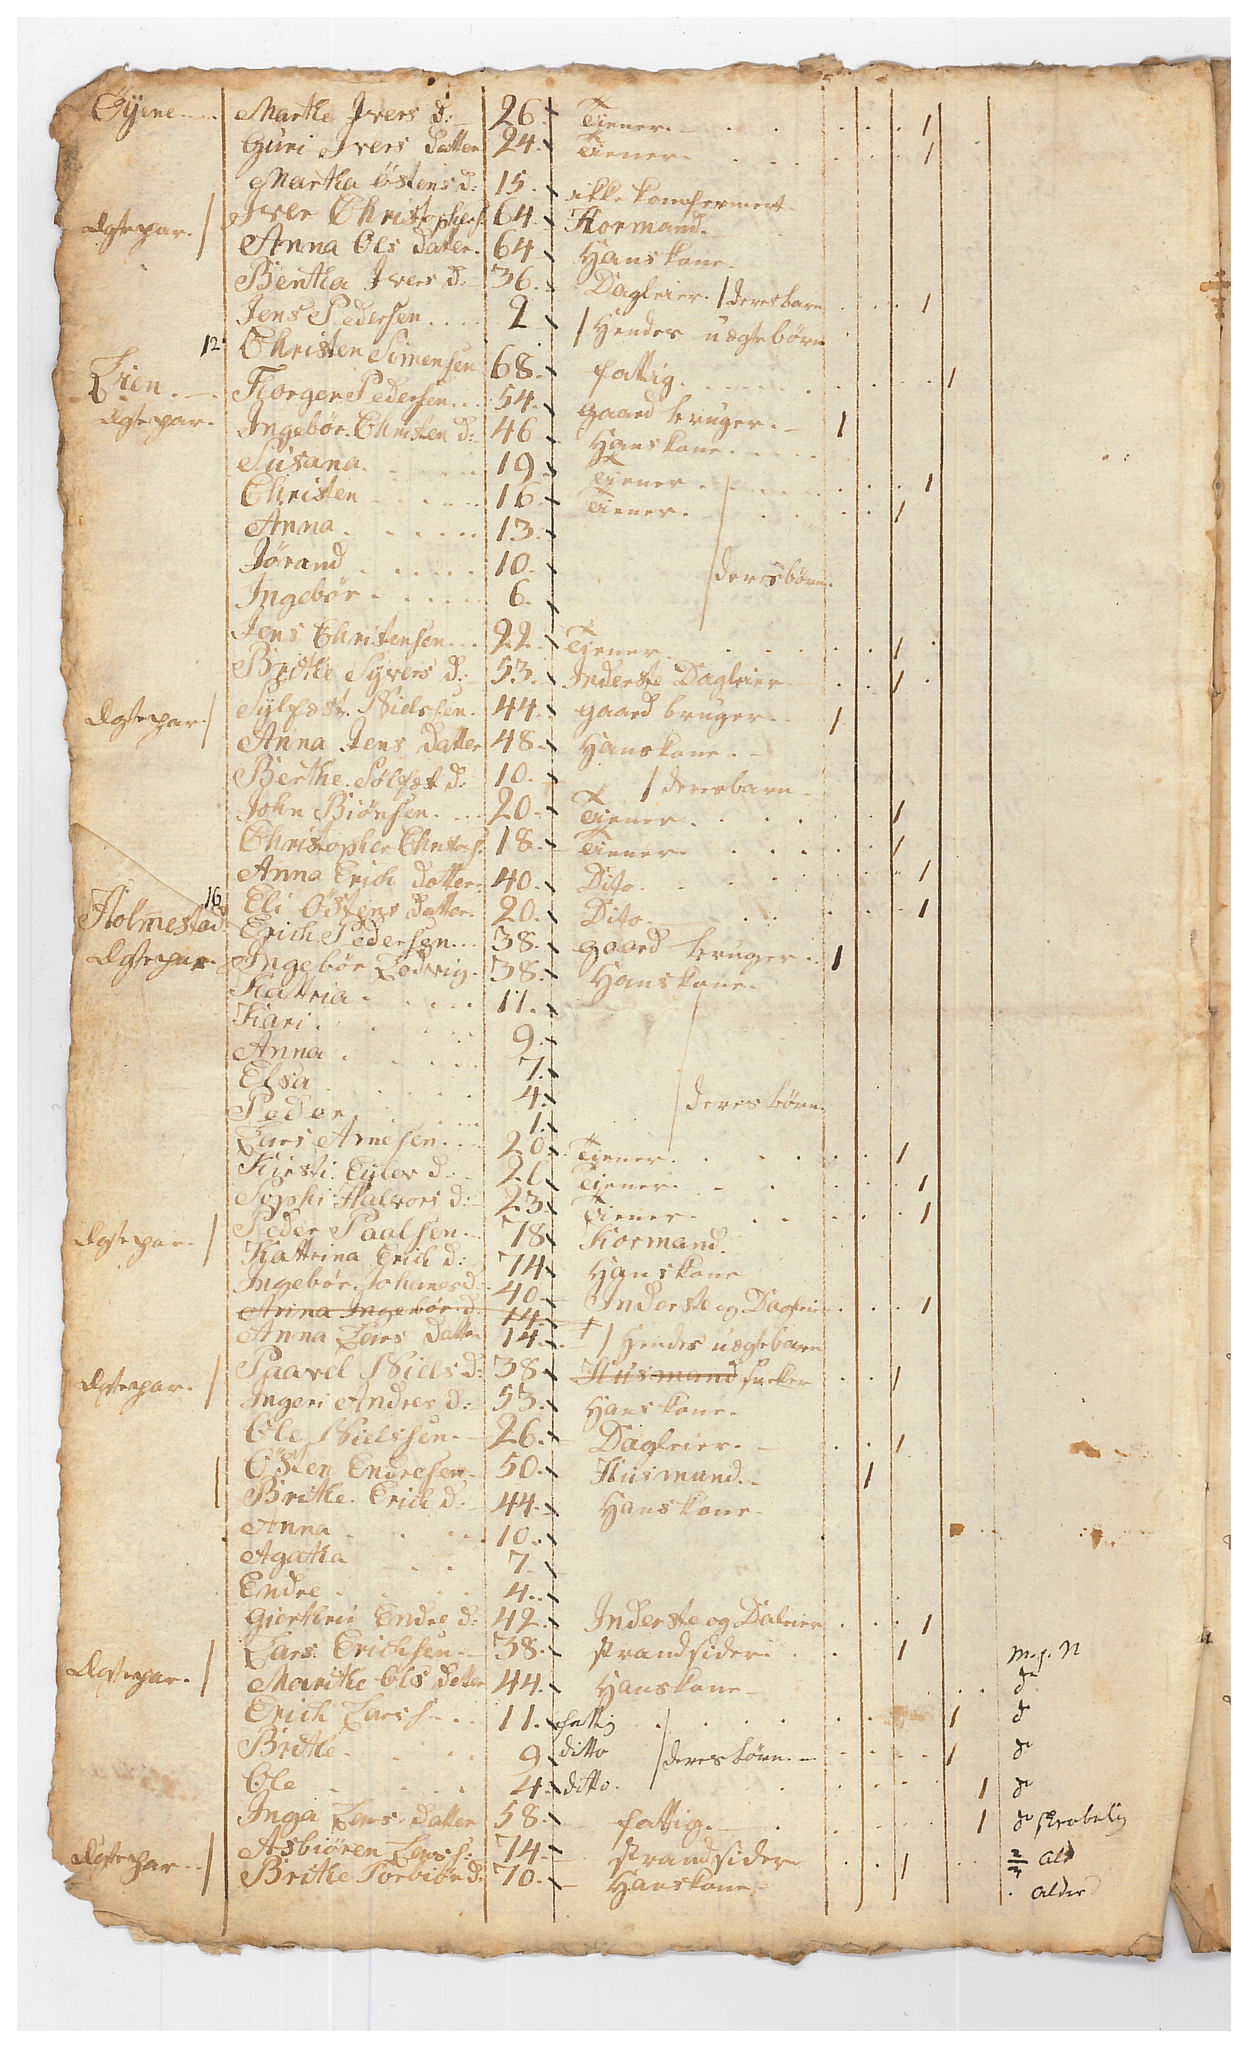 Öÿene Marthe Ivers d: 26. Tiener. 1
Guri Ivers datter 24. Tiener. 1
Martha Östens d: 15. ikke komfermert.
Egtepar. Iver Christophers. 64. Kormand.
Anna Ols datter. 64 Hans kone.
Bertha Ivers d. 36. Dagleier. / deres barn 1
Jens Pedersen 2 / Hendes uægte börn
12 Christen Simensen 68. fattig. 1
Lien. Torger Pedersen 54. gaard bruger. 1
Egtepar. Ingebör. Christen d: 46 Hans kone
Susana 19 Tiener 1
Christen 16 Tiener. 1
Anna 13.
Jörand 10. deres börn.
Ingebör 6.
Jens Christensen 22. Tjener 1
Brithe Syvers d: 53. Inderste Dagleier 1
Egtepar. Sylfæst. Nielssen. 44. gaard bruger. 1
Anna Jens datter 48. Hans kone.
Berthe. Sölfæt d: 10. / deres barn.
John Biönsen. 20. Tjener. 1
Christopher Christoph. 18. Tiener 1
Anna Erich datter. 40. Dito. 1
16 Eli Östens datter. 20. Dito. 1
Holmestad Erich Pedersen 38. gaard bruger. 1
Egtepar. Ingebör Lodvig. 38. Hans kone.
Katria 11.
Kari. 9.
Anna 7.
Elsa 4.
Peder 1. deres börn.
Lars Arnesen. 20. Tjener. 1
Kirsti. Eÿler d. 26 Tjener. 1
Sophi Halvors d: 23. Tiener 1
Egtepar. Peder Paalsen. 78 Kormand.
Kattrina Erich d: 74. Hans kone
Ingebör. Johanes d. 40 Inderste og Dagleier 1
Anna Ingebör. d. 14
Anna Lars datter 14. / Hendes uægte barn
Egtepar. Paavel Niels d: 38. Husmand 1
Ingeri Andres d: 53. Hans kone.
Ole Nielssen. 26. Dagleier. 1
Östen Endresen 50. Husmand. 1
Brithe. Erich d. 44. Hans kone
Anna 10.
Agatha 7.
Endre 4.
Giertrui Endre d: 42. Inderste og Daleier 1
Lars. Erichsen. 38. strandsider. 1 N
Egtepar. Marithe Ols detter 44. Hans kone do
Erich Larss. 11. fattig 1 do
Brithe. 9 ditto deres börn. 1 do
Ole 4. ditto. 1 do
Inga Lars datter 58. fattig. 1 do skrobelig
Egtepar. Asbiören Larss. 74. strandsider 1 ald
Brithe Torbiör d. 70. Hans kone alder